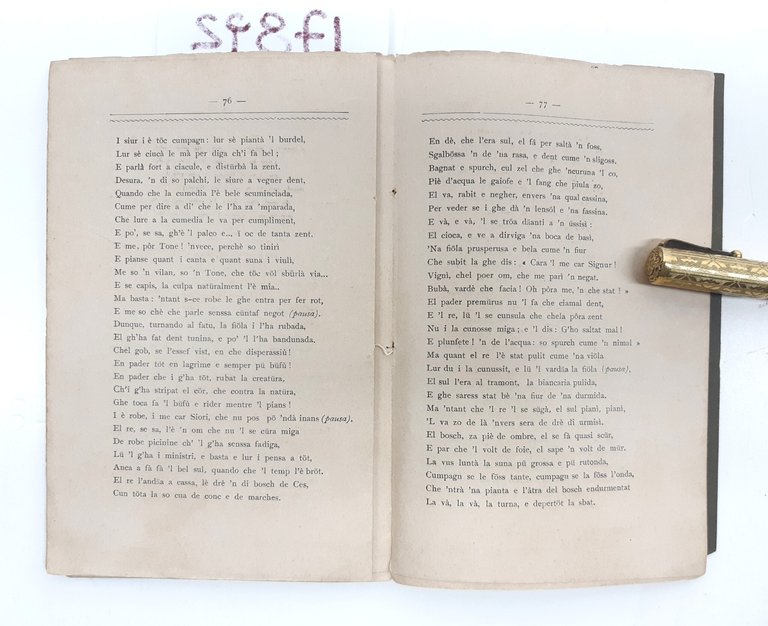 17812
— 76 —
I siur i è töc cumpagn: lur sè piantà 'l burdel,
Lur sè ciucà le mà per diga ch'i fa bel;
E parlà fort a ciacule, e distürbà la zent.
Desura, 'n di so palchi, le siure a vegner dent,
Quando che la cumedia l'è bele scuminciada,
Cume per dire a di' che le l'ha za 'mparada,
Che lure a la cumedia le va per cumpliment,
E po', se sa, gh'è 'l palco e... i oc de tanta zent.
E me, pör Tone! 'nvece, perchè so tinirì
E pianse quant i canta e quant suna i viulì,
Me so 'n vilan, so 'n Tone, che töc völ sbürlà via...
E se capis, la culpa natüralment l'è mia..
Ma basta: 'ntant s-ce robe le ghe entra per fer rot,
E me so chè che parle senssa cüntaf negot (pausa).
Dunque, turnando al fatu, la fiöla i l'ha rubada,
El gh'ha fat dent tunina, e po' 'l l'ha bandunada.
Chel gob, se l'essef vist, en che disperassiù!
En pader töt en lagrime e semper pü büfù!
En pader che i g'ha töt, rubat la creatüra,
Ch'i g'ha stripat el cör, che contra la natüra,
Ghe toca fa 'l büfù e rider mentre 'l pians!
I è robe, i me car Siori, che nu pos pö 'ndà inans (pausa).
El re, se sa, l'è 'n om che nu 'l se cüra miga
De robe picinine ch' 'l g'ha senssa fadiga,
Lü 'l g'ha i ministri, e basta e lur i pensa a töt,
Anca a fà fà 'l bel sul, quando che 'l temp l'è bröt.
El re l'andàa a cassa, lè drè 'n di bosch de Ces,
Cun töta la so cua de conc e de marches.
— 77 —
En dè, che l'era sul, el fà per saltà 'n foss,
Sgalbössa 'n de 'na rasa, e dent cume 'n sligoss,
Bagnat e spurch, cul zel che ghe 'ncuruna 'l co,
Piè d'acqua le gaiofe e 'l fang che piula zo,
El va, rabit e negher, envers 'na qual cassina,
Per veder se i ghe dà 'n lensöl e 'na fassina.
E và, e và, 'l se tröa däanti a 'n üssisì:
El cioca, e ve a dirviga 'na boca de basì,
'Na fiöla prusperusa e bela cume 'n fiur
Che subit la ghe dis: « Cara 'l me car Signur!
Vignì, chel poer om, che me parì 'n negat.
Bubà, vardè che facia! Oh pöra me, 'n che stat! »
El pader premürus nu 'l fa che ciamal dent,
E 'l re, lü 'l se cunsula che chela pöra zent
Nu i la cunosse miga; e 'l dis: G'ho saltat mal!
E plunfete! 'n de l'acqua: so spurch cume 'n nimal »
Ma quant el re l'è stat pulit cume 'na viöla
Lur du i la cunussit, e lü 'l vardia la fiöla (pausa).
El sul l'era al tramont, la biancaria pulida,
E ghe saress stat bè 'na fiur de 'na durmida.
Ma 'ntant che 'l re 'l se sügà, el sul pianì, pianì,
'L va zo de là 'nvers sera de drè di urmisì.
El bosch, za piè de ombre, el se fà quasi scür,
E par che 'l volt de foie, el sape 'n volt de mür.
La vus luntà la suna pü grossa e pü rutonda,
Cumpagn se le föss tante, cumpagn se la föss l'onda,
Che 'ntrà 'na pianta e l'âtra del bosch endurmentat
La và, la và, la turna, e depertöt la sbat.